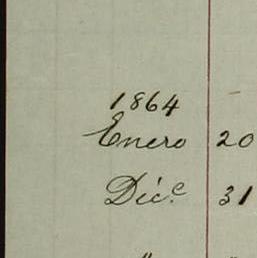 1864
Enero 20
Dic.e 31